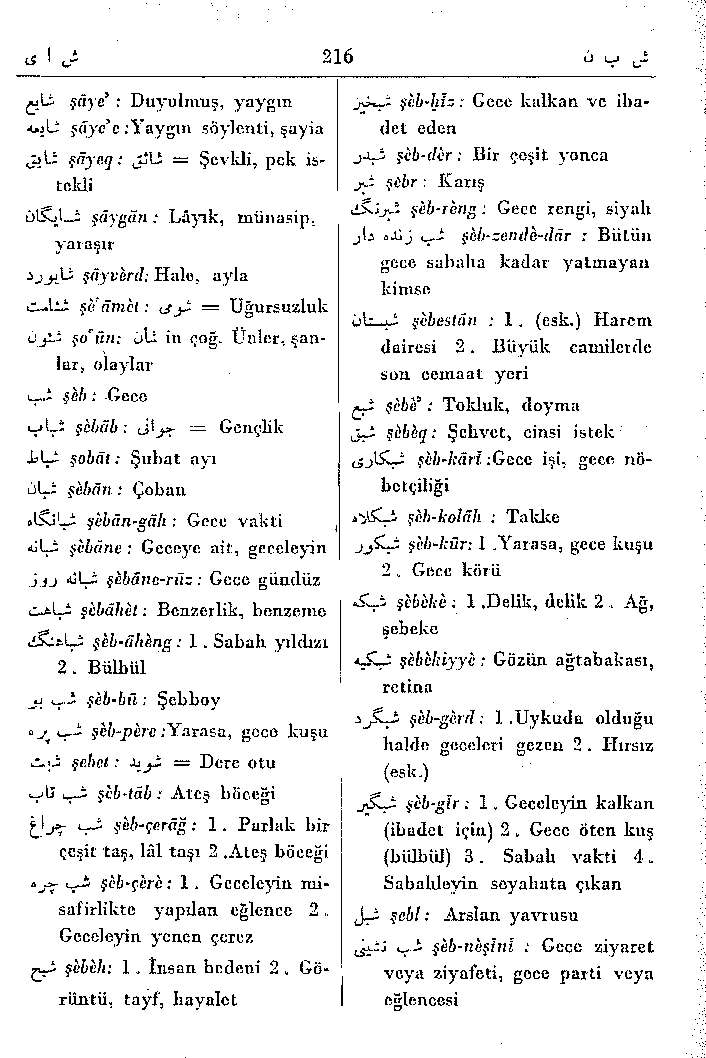 ش ا ی 216 ش ب ن
شایع şāye' : Duyulmuş, yaygın
شایعه şāye'e :Yaygın söylenti, şayia
شایق şāyeq : شائق = Şevkli, pek is-
tekli
شایگان şāygān : Lâyık, münasip,
yaraşır
شایورد şāyvèrd: Hale, ayla
شئامت şè'āmèt : شومی = Uğursuzluk
شئون şo'ūn: شان in çoğ. Ünler, şan-
lar, olaylar
شب şèb : Gece
شباب şèbāb : جوانی = Gençlik
شباط şobāt : Şubat ayı
شبان şèbān : Çoban
شبانگاه şèbān-gāh : Gece vakti
شبانه şèbāne : Geceye ait, geceleyin
شبانه روز şèbāne-rūz : Gece gündüz
شباهت şèbāhèt : Benzerlik, benzeme
شباهنگ şèb-āhèng : 1 . Sabah yıldızı
2 . Bülbül
شب بو şèb-bū : Şebboy
شب پره şèb-père :Yarasa, gece kuşu
شبت şebet : شوید = Dere otu
شب تاب şèb-tāb : Ateş böceği
شب چراغ şèb-çerāğ : 1 . Parlak bir
çeşit taş, lâl taşı 2 .Ateş böceği
شب چره şèb-çère : 1 . Geceleyin mi-
safirlikte yapılan eğlence 2 .
Geceleyin yenen çerez
شبح şèbèh: 1 . İnsan bedeni 2 . Gö-
rüntü, tayf, hayalet
شبخیز şèb-hīz : Gece kalkan ve iba-
det eden
شبدر şèb-dèr : Bir çeşit yonca
شبر şèbr : Karış
شبرنگ şèb-rèng : Gece rengi, siyah
شب زنده دار şèb-zendè-dār : Bütün
gece sabaha kadar yatmayan
kimse
شبستان şèbestān : 1 . (esk.) Harem
dairesi 2 . Büyük camilerde
son cemaat yeri
شبع şèbè' : Tokluk, doyma
شبق şèbèq : Şehvet, cinsi istek
شبکاری şèb-kārī :Gece işi, gece nö-
betçiliği
شبکلاه şèb-kolāh : Takke
شبکور şèb-kūr: 1 .Yarasa, gece kuşu
2 . Gece körü
شبکه şèbèkè : 1 .Delik, delik 2 . Ağ,
şebeke
شبکیه şèbèkiyyè : Gözün ağtabakası,
retina
شبگرد şèb-gèrd : 1 .Uykuda olduğu
halde geceleri gezen 2 . Hırsız
(esk.)
شبگیر şèb-gīr : 1 . Geceleyin kalkan
(ibadet için) 2 . Gece öten kuş
(bülbül) 3 . Sabah vakti 4 .
Sabahleyin seyahata çıkan
شبل şebl : Arslan yavrusu
شب نشینی şèb-nèşīnī : Gece ziyaret
veya ziyafeti, gece parti veya
eğlencesi